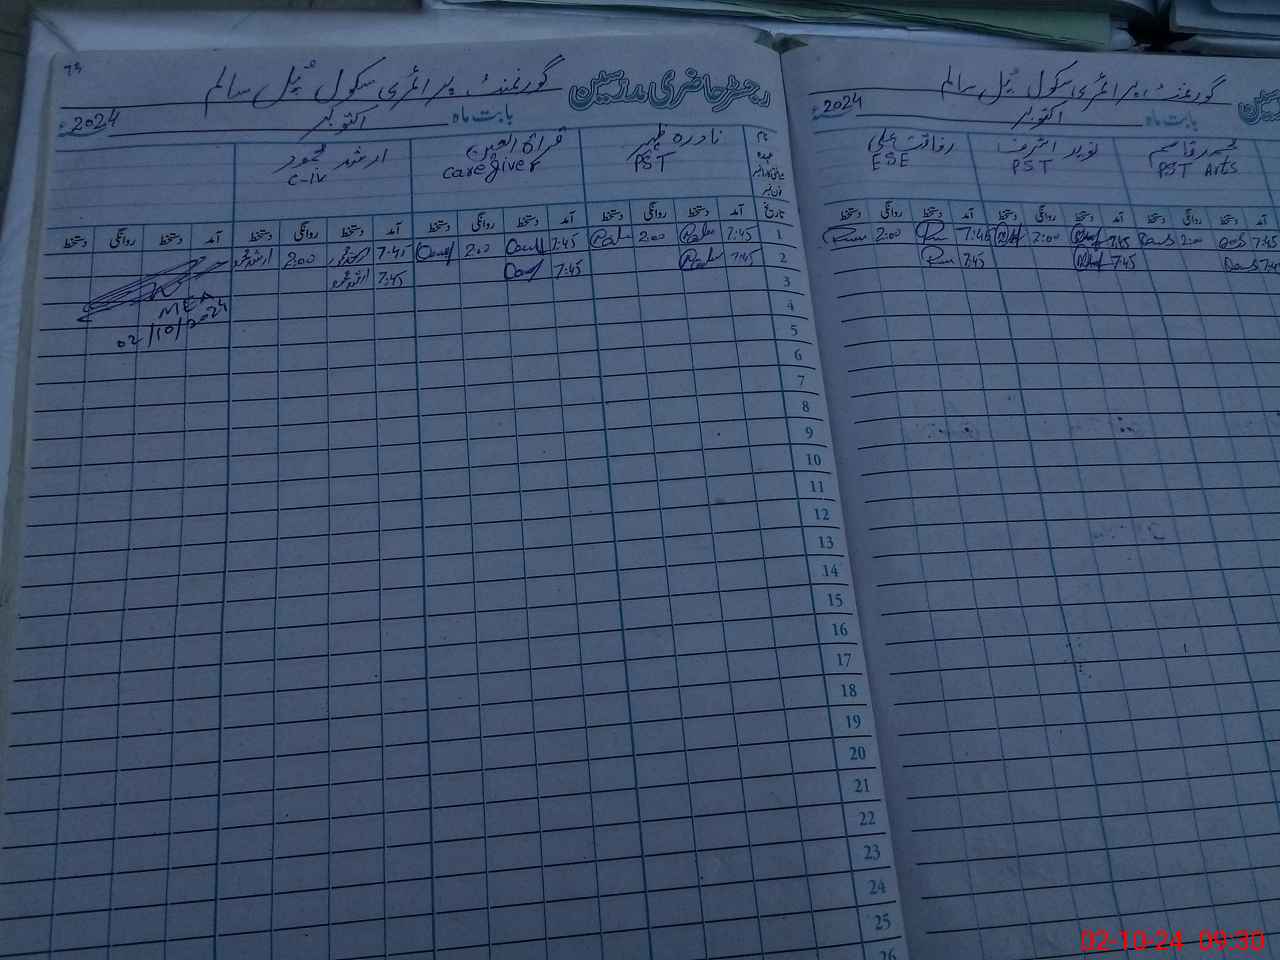 رجسٹر حاضری مدرسین گورنمنٹ پرائمری سکول پُل سالم
بابت ماہ اکتوبر 2024ء
نام نادرہ ظہیر قراۃ العین ارشد محمود
عہدہ PST Caregiver C-iv
تاریخ آمد دستخط روانگی دستخط آمد دستخط روانگی دستخط آمد دستخط روانگی دستخط آمد دستخط روانگی دستخط
1 7:45 2:00 7:45 2:00 7:45 2:00
2 7:45 7:45 7:45
3
4
5
6
7
8
9
10
11
12
13
14
15
16
17
18
19
20
21
22
23
24
25
26
MEA
02/10/2024
گورنمنٹ پرائمری سکول پُل سالم
بابت ماہ اکتوبر 2024ء
محمد قاسم نوید اشرف رفاقت علی
PST Arts PST ESE
آمد دستخط روانگی دستخط آمد دستخط روانگی دستخط آمد دستخط روانگی دستخط
7:45 2:00 7:45 2:00 7:45 2:00
7:45 7:45 7:45
02-10-24 09:30